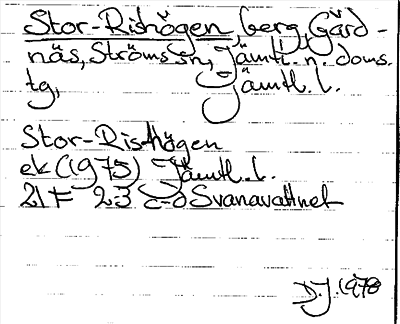 Stor-Rishögen, berg, Gärd-
näs, Ströms sn, Jämtl. n. doms.
tg, Jämtl. l.
Stor-Risthögen
ek (1975) Jämtl. l.
21F 23 c-d Svanavattnet
D.J. 1978